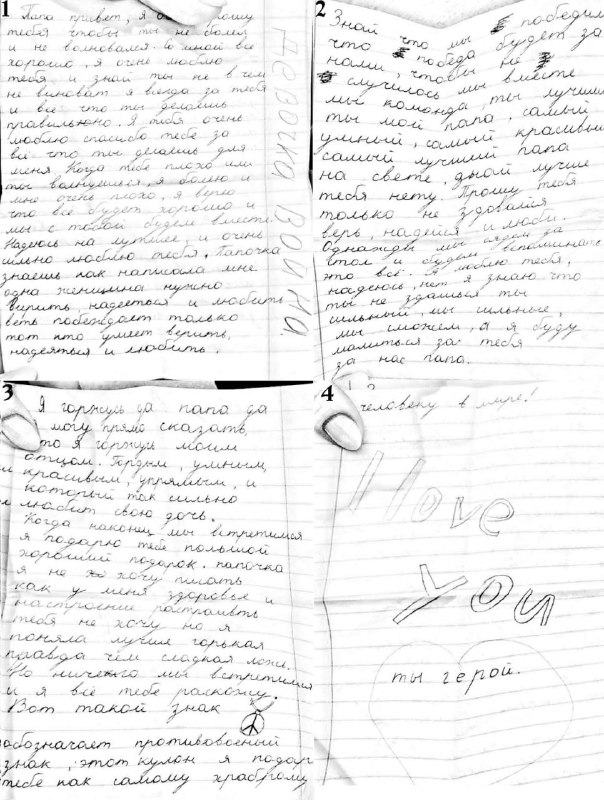 1
Папа привет, я прошу
тебя чтобы ты не болел
и не волновался. Со мной все
хорошо, я очень люблю
тебя и знай ты не в чем
не виноват я всегда за тебя
и все что ты делаешь
правильно. Я тебя очень
люблю спасибо тебе за
всё что ты делаешь для
меня. Когда тебе плохо или
ты волнуешься, я болею и
мне очень плохо, я верю
что все будет хорошо и
мы с тобой будем вместе.
Надеюсь на лутшее, и очень
сильно люблю тебя, Папочка
знаешь как написала мне
одна женщина нужно
верить, надеяться и любить
веть побеждает только
тот кто умеет верить,
надеяться и любить.
девочка война
2
Знай что мы победим
что победа будет за
нами, чтобы не
случилось мы вместе
мы команда ты лучший
ты мой папа, самый
умный, самый красивый
самый лучший папа
на свете, длой лучше
тебя нету. Прошу тебя
только не здовайся
верь, надейся и люби.
Однажды мы сядем за
стол и будем вспоминать
это всё. Я люблю тебя,
надеюсь, нет я знаю что
ты не здашься ты
сильный, мы сильные,
мы сможем, а я буду
молиться за тебя
за нас папа.
3
Я горжусь да папа да
могу прямо сказать,
то я горжусь моим
отцом. Гордым, умным,
красивым, упрямым, и
который так сильно
любит свою дочь.
Когда наконец мы встретимся
я подарю тебе большой
хороший подарок. папочка
я не хочу писать
как у меня здоровье и
настроение растраивть
тебя не хочу но я
поняла лучше горькая
правда чем сладкая ложь.
Но ничего мы встретимся
и я всё тебе раскожу.
Вот такой знак
обозначает противовоеный
знак, этот кулон я подар
тебе как самому храброму
4
человеку в мире!
I love
you
ты герой.